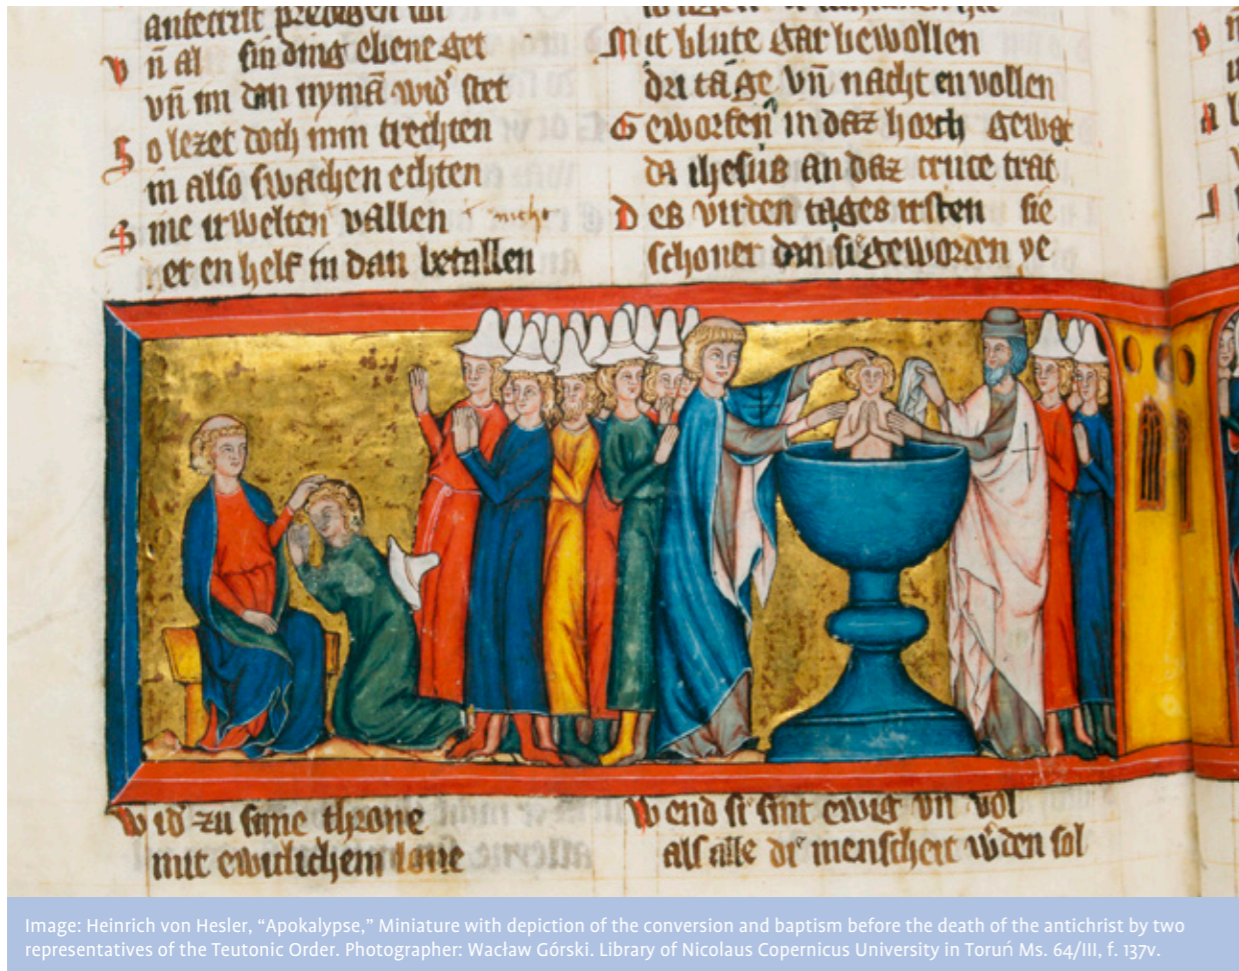 antecrist predigen
vn al sin ding ebene get
vn im dan nymā wid stet
So lezet doch min trechten
in also swachen echten
Sine irwelten vallen
et en helf in dan betallen
Mit blute gar bewollen
dri tage vn nacht en vollen
Geworfen in daz horch gewat
da ihesus an daz cruce trat
Des virden tages irsten sie
schoner dan si geworden ye
Wid zu sime throne
mit ewiclichem lone
Wend si sint ewig vn vol
als alle di menscheit wden sol
Image: Heinrich von Hesler, “Apokalypse,” Miniature with depiction of the conversion and baptism before the death of the antichrist by two
representatives of the Teutonic Order. Photographer: Wacław Górski. Library of Nicolaus Copernicus University in Toruń Ms. 64/III, f. 137v.